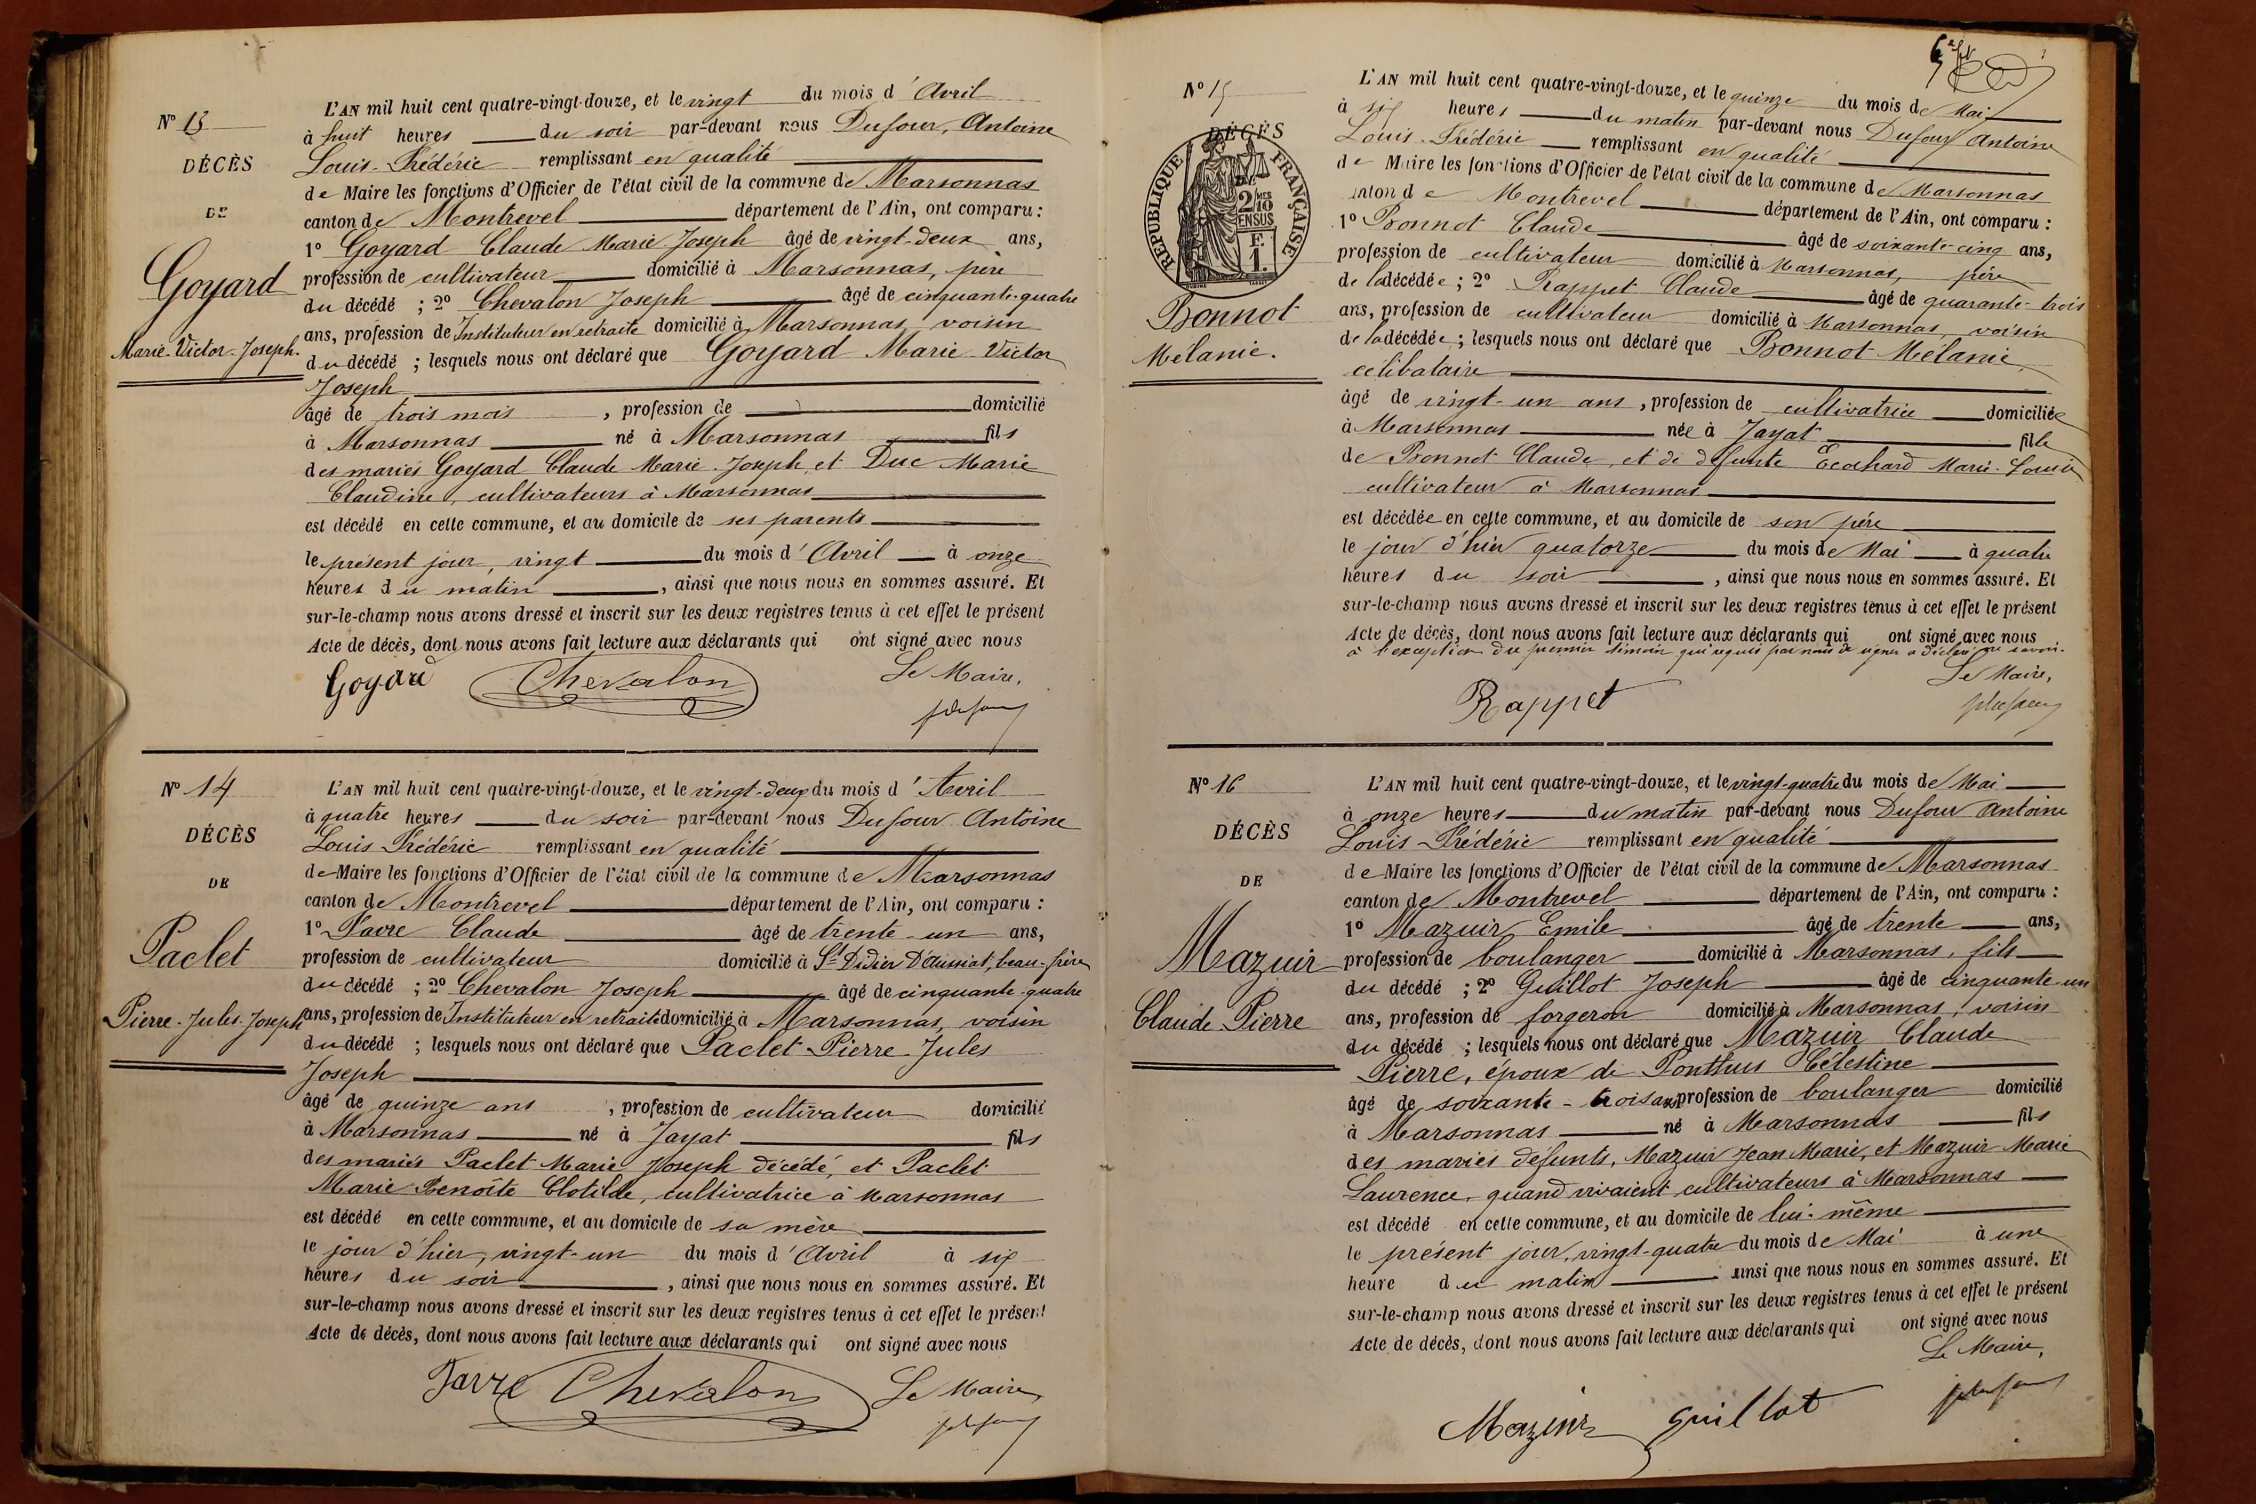 N° 13
DÉCÈS
DE
Goyard
Marie-Victor-Joseph.
L'AN mil huit cent quatre-vingt-douze, et le vingt du mois d'Avril
à huit heures du soir par-devant nous Dufour, Antoine
Louis-Frédéric remplissant en qualité
de Maire les fonctions d'Officier de l'état civil de la commune de Marsonnas
canton de Montrevel département de l'Ain, ont comparu :
1° Goyard Claude Marie Joseph âgé de vingt-deux ans,
profession de cultivateur domicilié à Marsonnas, père
du décédé ; 2° Chevalon Joseph âgé de cinquante-quatre
ans, profession de Instituteur en retraite domicilié à Marsonnas, voisin
du décédé ; lesquels nous ont déclaré que Goyard Marie-Victor
Joseph
âgé de trois mois , profession de domicilié
à Marsonnas né à Marsonnas fils
des mariés Goyard Claude Marie-Joseph, et Duc Marie
Claudine, cultivateurs à Marsonnas
est décédé en cette commune, et au domicile de ses parents
le présent jour, vingt du mois d'Avril à onze
heures du matin , ainsi que nous nous en sommes assuré. Et
sur-le-champ nous avons dressé et inscrit sur les deux registres tenus à cet effet le présent
Acte de décès, dont nous avons fait lecture aux déclarants qui ont signé avec nous
Goyard Chevalon Le Maire,
N° 14
DÉCÈS
DE
Paclet
Pierre-Jules-Joseph
L'AN mil huit cent quatre-vingt-douze, et le vingt-deux du mois d'Avril
à quatre heures du soir par-devant nous Dufour Antoine
Louis Frédéric remplissant en qualité
de Maire les fonctions d'Officier de l'état civil de la commune de Marsonnas
canton de Montrevel département de l'Ain, ont comparu :
1° Favre Claude âgé de trente-un ans,
profession de cultivateur domicilié à St Didier D'Aussiat, beau-frère
du décédé ; 2° Chevalon Joseph âgé de cinquante-quatre
ans, profession de Instituteur en retraite domicilié à Marsonnas, voisin
du décédé ; lesquels nous ont déclaré que Paclet Pierre-Jules
Joseph
âgé de quinze ans , profession de cultivateur domicilié
à Marsonnas né à Jayat fils
des mariés Paclet Marie Joseph décédé, et Paclet
Marie Benoîte Clotilde, cultivatrice à Marsonnas
est décédé en cette commune, et au domicile de sa mère
le jour d'hier, vingt-un du mois d'Avril à six
heures du soir , ainsi que nous nous en sommes assuré. Et
sur-le-champ nous avons dressé et inscrit sur les deux registres tenus à cet effet le présent
Acte de décès, dont nous avons fait lecture aux déclarants qui ont signé avec nous
Favre Chevalon Le Maire,
N° 15
DÉCÈS
DE
RÉPUBLIQUE FRANÇAISE
2 MES 10
EN SUS
F.
1.
Bonnot
Mélanie.
L'AN mil huit cent quatre-vingt-douze, et le quinze du mois de Mai
à six heures du matin par-devant nous Dufour Antoine
Louis-Frédéric remplissant en qualité
de Maire les fonctions d'Officier de l'état civil de la commune de Marsonnas
canton de Montrevel département de l'Ain, ont comparu :
1° Bonnot Claude âgé de soixante-cinq ans,
profession de cultivateur domicilié à Marsonnas, père
de la décédée ; 2° Rappet Claude âgé de quarante-trois
ans, profession de cultivateur domicilié à Marsonnas, voisin
de la décédée ; lesquels nous ont déclaré que Bonnot Mélanie,
célibataire
âgé de vingt-un ans , profession de cultivatrice domiciliée
à Marsonnas née à Jayat fille
de Bonnot Claude, et de défunte Ecochard Marie-Louise
cultivateur à Marsonnas
est décédée en cette commune, et au domicile de son père
le jour d'hier quatorze du mois de Mai à quatre
heures du soir , ainsi que nous nous en sommes assuré. Et
sur-le-champ nous avons dressé et inscrit sur les deux registres tenus à cet effet le présent
Acte de décès, dont nous avons fait lecture aux déclarants qui ont signé avec nous
à l'exception du premier témoin qui requis par nous de signer a déclaré ne savoir.
Le Maire,
Rappet
N° 16
DÉCÈS
DE
Mazuir
Claude Pierre
L'AN mil huit cent quatre-vingt-douze, et le vingt-quatre du mois de Mai
à onze heures du matin par-devant nous Dufour Antoine
Louis-Frédéric remplissant en qualité
de Maire les fonctions d'Officier de l'état civil de la commune de Marsonnas
canton de Montrevel département de l'Ain, ont comparu :
1° Mazuir Emile âgé de trente ans,
profession de boulanger domicilié à Marsonnas, fils
du décédé ; 2° Guillot Joseph âgé de cinquante-un
ans, profession de forgeron domicilié à Marsonnas, voisin
du décédé ; lesquels nous ont déclaré que Mazuir Claude
Pierre, époux de Ponthus Célestine
âgé de soixante-trois ans profession de boulanger domicilié
à Marsonnas né à Marsonnas fils
des mariés défunts, Mazuir Jean Marie, et Mazuir Marie
Laurence, quand vivaient cultivateurs à Marsonnas
est décédé en cette commune, et au domicile de lui-même
le présent jour, vingt-quatre du mois de Mai à une
heure du matin ainsi que nous nous en sommes assuré. Et
sur-le-champ nous avons dressé et inscrit sur les deux registres tenus à cet effet le présent
Acte de décès, dont nous avons fait lecture aux déclarants qui ont signé avec nous
Le Maire,
Mazuir Guillot